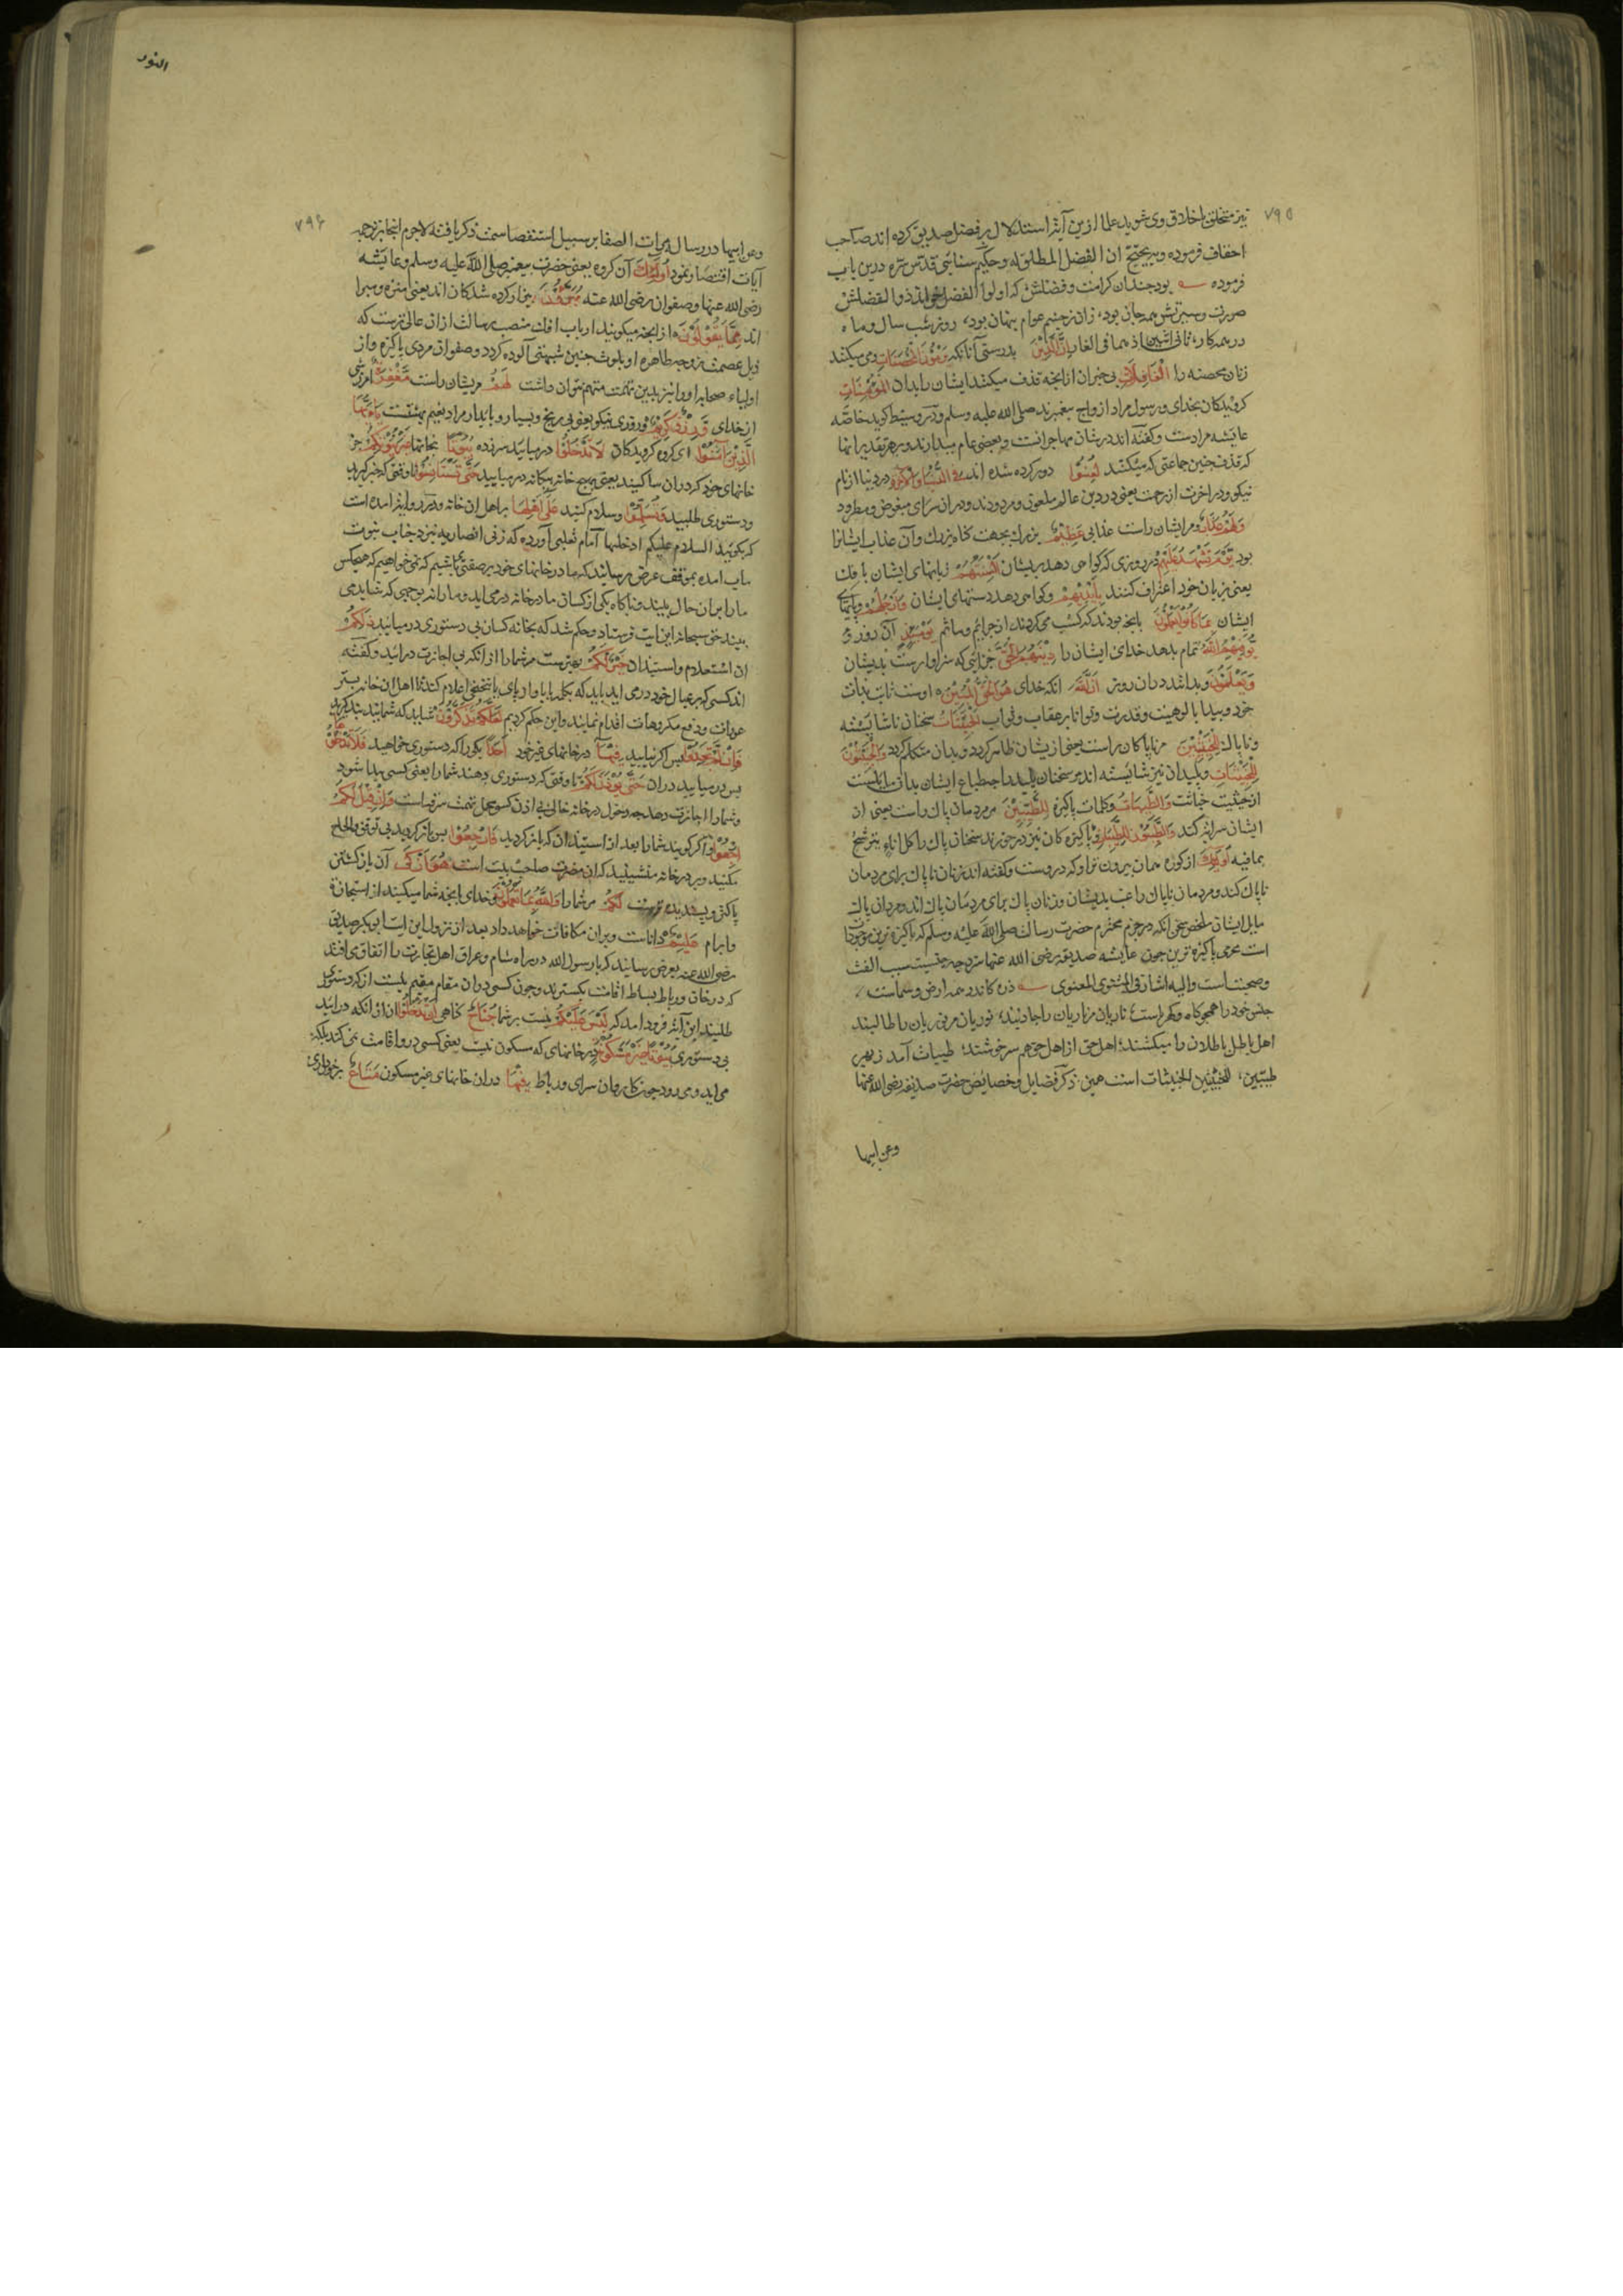 ۷۹۵
نیز متخلق باخلاق وی شوید علما ازین آیت استدلال بر فضل صدیق کرده اند صاحب
احقاف فرموده وبه یحتج ان الفضل المطلق له وحکیم سنائی قدس سره درین باب
فرموده بود چندان کرامت وفضلش که اولوا الفضل خواند ذوالفضلش
صورت وسیرتش همه جان بود، زان ز چشم عوام پنهان بود، روز وشب سال وماه
در همه کار، ثانی اثنین اذ هما فی الغار إِنَّ الَّذِينَ بدرستی آنانکه يَرْمُونَ الْمُحْصَنَاتِ رمی میکنند
زنان محصنه را الْغَافِلَاتِ بی خبران از انچه قذف میکنند ایشان را بدان الْمُؤْمِنَاتِ
کرویدکان بخدای ورسول مراد ازواج پیغمبرند صلی الله علیه وسلم ودر وسیط کوید خاصّه
عایشه مرادست وکفته اند در شان مهاجراتست وبعضی عام میدارند وبر هر تقدیر انها
که قذف چنین جماعتی که میکنند لُعِنُوا دور کرده شده اند فِي الدُّنْيَا وَالْآخِرَةِ در دنیا از نام
نیکو ودر اخرت از رحمت یعنی در دین عالم ملعون ومردودند ودران سرای مبغوض ومطرود
وَلَهُمْ عَذَابٌ ومر ایشان راست عذابی عَظِيمٌ بزرك بجهت کناه بزرك وآن عذاب ایشانرا
بود يَوْمَ تَشْهَدُ عَلَيْهِمْ در روزی که کواهی دهد بریشان أَلْسِنَتُهُمْ زبانهای ایشان بافك
یعنی بزبان خود اعتراف کنند وَأَيْدِيهِمْ وکواهی دهد دستهای ایشان وَأَرْجُلُهُمْ وپایهای
ایشان بِمَا كَانُوا يَعْمَلُونَ بانچه بودند که کسب می کردند از جرائم ومآثم يَوْمَئِذٍ آن روز
يُوَفِّيهِمُ اللَّهُ تمام بدهد خدای ایشان را دِينَهُمُ الْحَقَّ جزائی که سزاوارست بدیشان
وَيَعْلَمُونَ وبدانند دران روز أَنَّ اللَّهَ آنکه خدای هُوَ الْحَقُّ الْمُبِينُ اوست ثابت بذات
خود وپیدا بالوهیت وقدرت وتوانا بر عقاب وثواب الْخَبِيثَاتُ سخنان ناشایسته
وناپاك لِلْخَبِيثِينَ مر ناپاکان راست یعنی ازیشان ظاهر کردد وبدان متکلم کردند وَالْخَبِيثُونَ
لِلْخَبِيثَاتِ وپلیدان نیز شایسته اند مر سخنان پلید را چه طباع ایشان بدان مایلست
از حیثیت خباثت وَالطَّيِّبَاتُ وکلمات پاکیزه لِلطَّيِّبِينَ مر مردمان پاك راست یعنی از
ایشان سر برکند وَالطَّيِّبُونَ لِلطَّيِّبَاتِ وپاکیزه کان نیز درخورند سخنان پاك را کل اناء یترشح
بما فیه أُولَئِكَ از کوزه همان برون تراود که دروست وکفته اند زنان ناپاك برای مردمان
ناپاك کنند ومردمان ناپاك راغب بدیشان وزنان پاك برای مردمان پاك اند ومردان پاك
مایل ایشان ملخص سخن آنکه در حرم محترم حضرت رسالت صلی الله علیه وسلم که پاکیزه ترین موجودات
است محرمی پاکیزه ترین چون عایشه صدیقه رضی الله عنها سزد چه جنسیت سبب الفت
وصحبتست والیه اشار فی المثنوی المعنوی ذره کاندر همه ارض وسماست،
جنس خود را همچو کاه وکهرباست؛ ناریان مر ناریان را جاذبند، نوریان مر نوریان را طالبند
اهل باطل باطلان را میکشند؛ اهل حق از اهل حق هم سرخوشند؛ طیبات آمد ز بهر
طیبین، للخبیثین الخبیثات است همین ذکر فضایل وخصایص حضرت صدیقه رضی الله عنها
وعن ابیها
النور
۷۹۶
وعن ابیها در رساله مرآت الصفا بر سبیل استقصا سمت ذکر یافته لاجرم اینجا بترجمه
آیات اقتصار نمود أُولَئِكَ آن کروه یعنی حضرت پیغمبر صلی الله علیه وسلم وعایشه
رضی الله عنها وصفوان رضی الله عنه مُبَرَّءُونَ بیزار کرده شدکان اند یعنی منزه ومبرا
اند مِمَّا يَقُولُونَ از انچه میکویند ارباب افك منصب رسالت ازان عالی ترست که
ذیل عصمت زوجه طاهره او بلوث چنین شبهتی آلوده کردد وصفوان مردی پاکیزه واز
اولیاء صحابه او را نیز بدین تهمت متهم نتوان داشت لَهُمْ مریشان راست مَغْفِرَةٌ امرزشی
از خدای وَرِزْقٌ كَرِيمٌ وروزی نیکو یعنی بی رنج وبسیار وپایدار مراد نعیم بهشتست يَا أَيُّهَا
الَّذِينَ آمَنُوا ای کروه کرویدکان لَا تَدْخُلُوا در میایید سرزده بُيُوتًا بخانها غَيْرَ بُيُوتِكُمْ جز
خانهای خود که دران ساکنید یعنی بهیچ خانه بیکانه در میایید حَتَّى تَسْتَأْنِسُوا تا وقتی که خبر کیرید
ودستوری طلبید وَتُسَلِّمُوا وسلام کنید عَلَى أَهْلِهَا بر اهل ان خانه ودر روایت امده است
که بکویند السلام علیکم ادخلها امام ثعلبی آورده که زنی انصاریه نزد جناب نبوت
ماب امده بموقف عرض رسانید که ما در خانهای خود بر صفتی می باشیم که نمی خواهیم که هیچکس
ما را بران حال بیند وناکاه یکی از کسان ما در خانه درمی اید وما را نه بوجهی که شاید می
بیند حق سبحانه این ایت فرستاد وحکم شد که بخانه کسان بی دستوری در میایید ذَلِكُمْ
ان استعلام واستیذان خَيْرٌ لَكُمْ بهترست مر شما را از انکه بی اجازت درایید وکفته
اند کسی که بر عیال خود درمی اید باید که بکلمه یا باواز پای یا بتنحنحی اعلام کند تا اهل ان خانه بستر
عورات ودفع مکروهات اقدام نمایند واین حکم کردیم لَعَلَّكُمْ تَذَكَّرُونَ شاید که شما پند پذیرید
فَإِنْ لَمْ تَجِدُوا پس اکر نیابید فِيهَا در خانهای غیر خود أَحَدًا یکی را که دستوری خواهید فَلَا تَدْخُلُوهَا
پس در میایید دران حَتَّى يُؤْذَنَ لَكُمْ تا وقتی که دستوری دهند شما را یعنی کسی پیدا شود
وشما را اجازت دهد چه دخول در خانه خالی بی اذن کسی محل تهمت سرقه است وَإِنْ قِيلَ لَكُمُ
ارْجِعُوا واکر کویند شما را بعد از استیذان که باز کردید فَارْجِعُوا پس باز کردید بی توقف والحاح
مکنید وبر در خانه منشینید که ان مضرت صاحب بیت است هُوَ أَزْكَى آن باز کشتن
پاکتر وپسندیده ترست لَكُمْ مر شما را وَاللَّهُ بِمَا تَعْمَلُونَ وخدای بانچه شما میکنید از استیجازة
وابرام عَلِيمٌ داناست وبران مکافات خواهد داد بعد از نزول این ایت ابو بکر صدیق
رضی الله عنه بعرض رسانید که یا رسول الله در راه شام وعراق اهل تجارت را اتفاق می افتد
که در خان ورباط بساط اقامت بکسترند وچون کسی دران مقام مقیم نیست از که دستوری
طلبند این آیت فرود امد که لَيْسَ عَلَيْكُمْ نیست بر شما جُنَاحٌ کناهی أَنْ تَدْخُلُوا ان از آنکه درایید
بی دستوری بُيُوتًا غَيْرَ مَسْكُونَةٍ در خانهای که مسکون نیست یعنی کسی درو اقامت نمی کند بلکه
می اید ومی رود چون کاروان سرای ورباط فِيهَا دران خانهای غیر مسکون مَتَاعٌ برخورداری